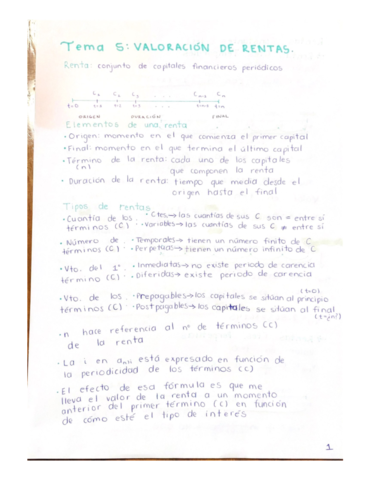 Tema 5: VALORACIÓN DE RENTAS.
Renta: conjunto de capitales financieros periódicos
C₁ C₂ C₃ ... Cₙ₋₁ Cₙ
t=0 t=1 t=2 t=3 ... t=n-1 t=n
ORIGEN DURACIÓN FINAL
Elementos de una renta
· Origen: momento en el que comienza el primer capital
· Final: momento en el que termina el último capital
· Término de la renta: cada uno de los capitales
(n) que componen la renta
· Duración de la renta: tiempo que media desde el
origen hasta el final
Tipos de rentas
· Cuantía de los · Ctes→ las cuantías de sus C son = entre sí
términos (C) · Variables→ las cuantías de sus C ≠ entre sí
· Número de · Temporales→ tienen un número finito de C
términos (C) · Perpetuas→ tienen un número infinito de C
· Vto. del 1º · Inmediatas→ no existe periodo de carencia
término (C) · Diferidas→ existe periodo de carencia
(t=0)
· Vto. de los · Prepagables→ los capitales se sitúan al principio
términos (C) · Postpagables→ los capitales se sitúan al final
· n hace referencia al nº de términos (C)
de la renta
· La i en aₙ¬ᵢ está expresado en función de
la periodicidad de los términos (C)
· El efecto de esa fórmula es que me
lleva el valor de la renta a un momento
anterior del primer término (C) en función
de cómo esté el tipo de interés
1